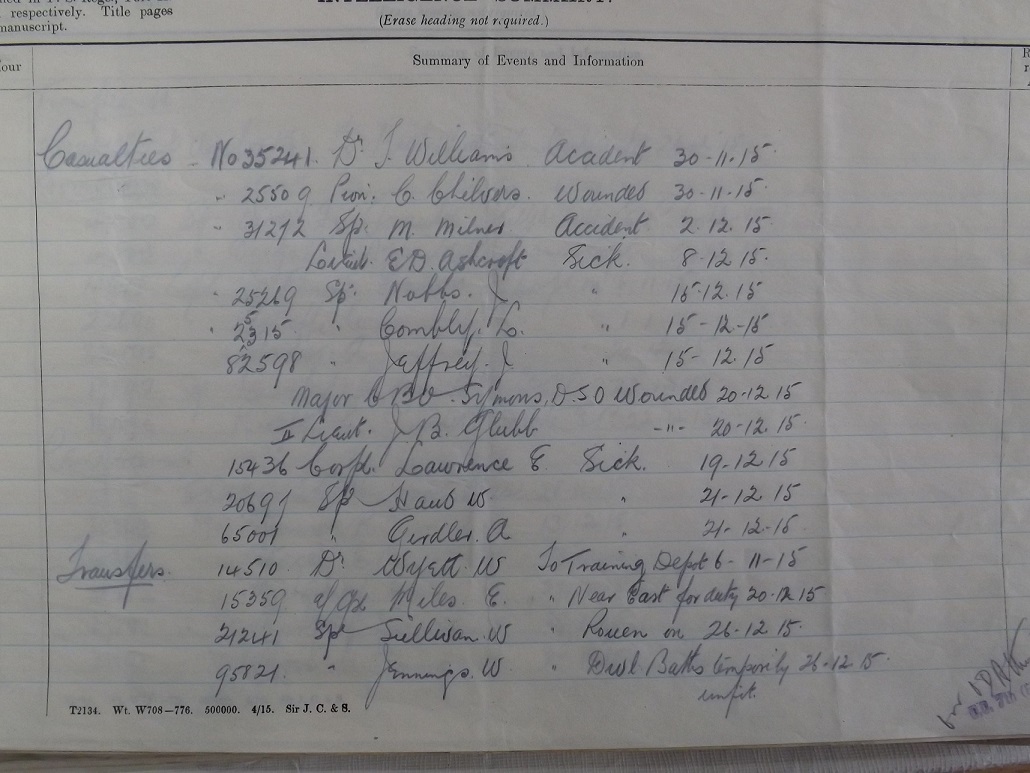 respectively. Title pages
manuscript.
INTELLIGENCE SUMMARY.
(Erase heading not required.)
our
Summary of Events and Information
Casualties - No 35241. Dr. J. Williams Accident 30-11-15
" 25509 Pion. C. Chilvers. Wounded 30-11-15
" 31272 Sp. M. Milnes Accident 2.12.15
Lieut. E.D. Ashcroft Sick. 8-12.15
" 25269 Sp. Nobbs. J " 15-12.15
" 2315 " L. " 15-12-15
82598 " Jeffrey. J " 15-12.15
Major C Symons, D.S.O Wounded 20-12 15
II Lieut. J. B. Glubb -"- 20-12.15
15436 Corpl. Lawrence E Sick. 19-12 15
Sp W " 21-12 15
65001 " Girdler. A " 21-12-15
Transfers. 14510 Dr. Wyett W To Training Depot 6-11-15
15359 Miles. E. " Near East for duty 20-12 15
21241 Sp Sullivan. W " Rouen on 26-12 15.
95821. " Jennings. W " Divl Baths 26-12 15.
unfit.
T2134. Wt. W708—776. 500000. 4/15. Sir J. C. & S.